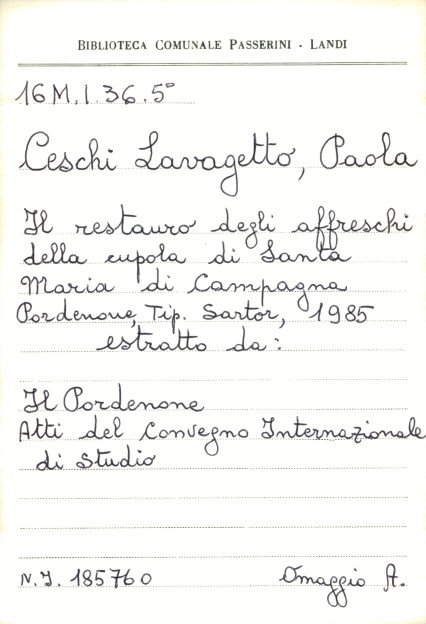 BIBLIOTECA COMUNALE PASSERINI - LANDI
16 M. I. 36. 5°
Ceschi Lavagetto, Paola
Il restauro degli affreschi
della cupola di Santa
Maria di Campagna
Pordenone, Tip. Sartor, 1985
estratto da:
Il Pordenone
Atti del Convegno Internazionale
di Studio
N.I. 185760
Omaggio A.